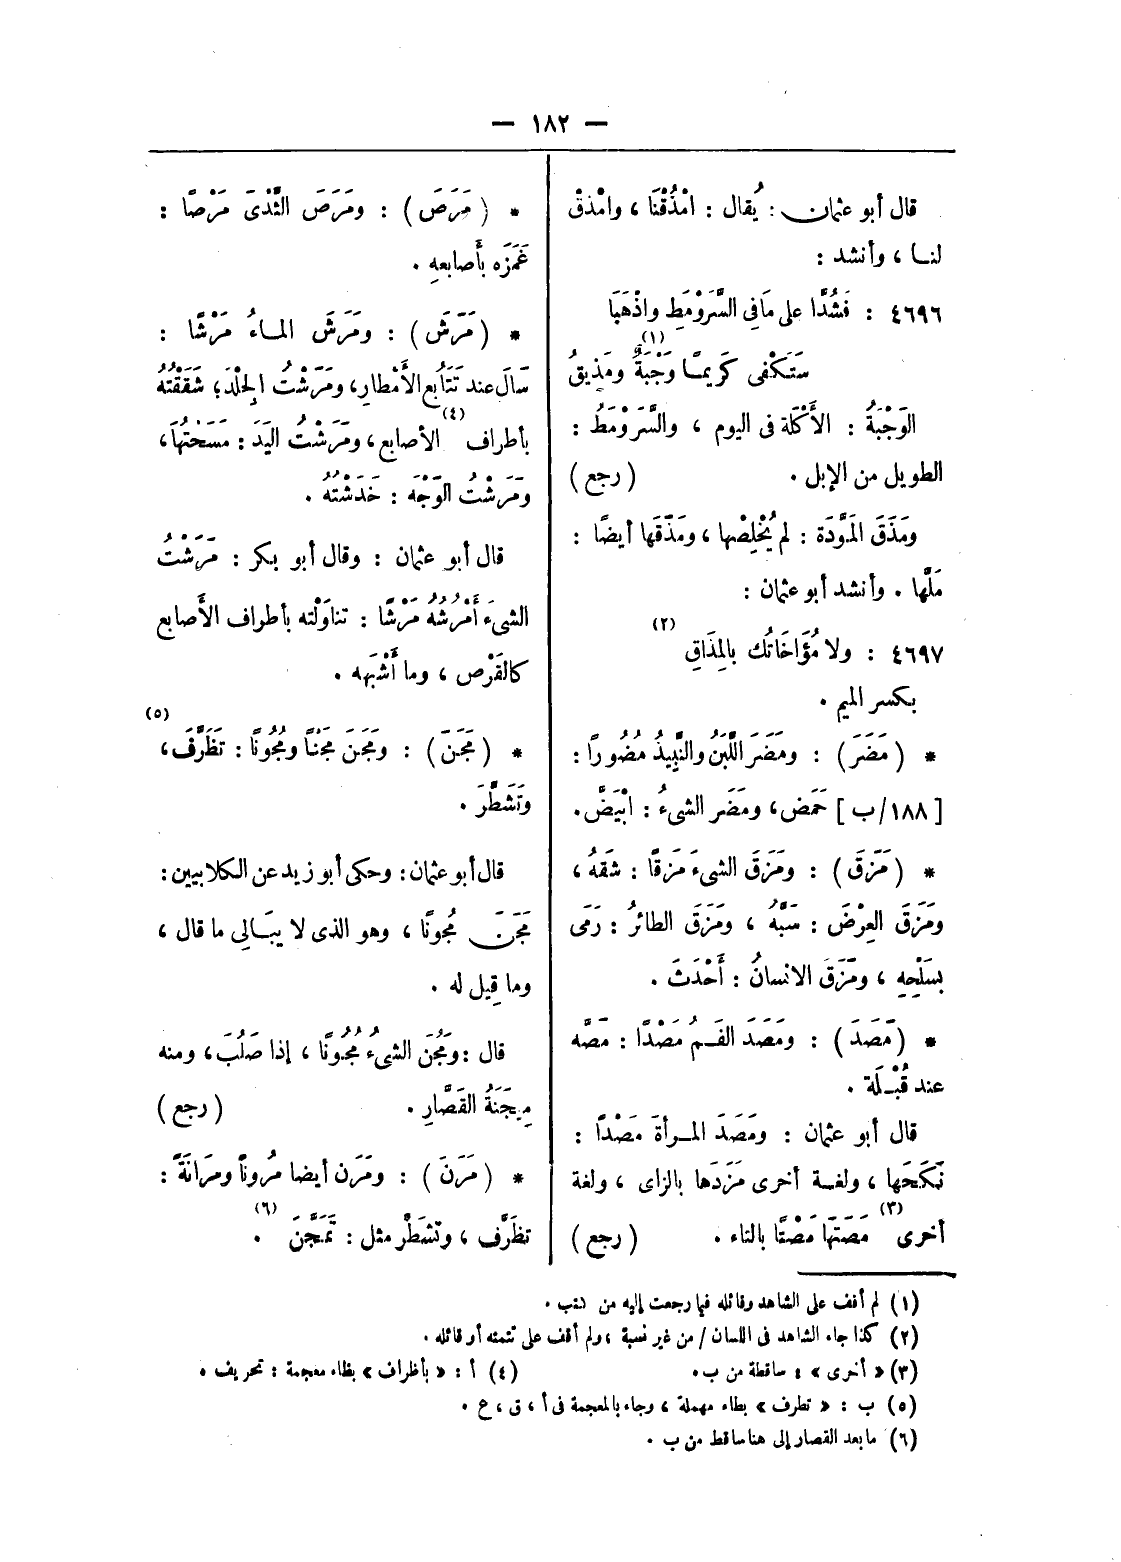 — ١٨٢ —
قال أبو عثمان : يُقال : امْذُقْنَا ، وامْذقْ
لنا ، وأنشد :
٤٦٩٦ : فَشُدَّا على مَافِى السَّرَوْمَطِ واذْهَبَا
سَتَكْفى كَرِيمًا وَجْبَةٌ ومَذِيقُ (١)
الوَجْبَةُ : الأَكْلة فى اليوم ، والسَّرَوْمَطُ :
الطويل من الإبل . (رجع)
ومَذَقَ المَوَّدَة : لم يُخْلِصْها ، ومَذَقَها أيضًا :
مَلَّها . وأنشد أبو عثمان :
٤٦٩٧ : ولا مُؤَاخَاتُك بالمِذَاقِ (٢)
بكسر الميم .
* (مَضَرَ) : ومَضَرَ اللَّبَنُ والنَّبِيذُ مُضُورًا :
[١٨٨/ب] حَمَض، ومَضَر الشىءُ : ابْيَضَّ.
* (مَزَقَ) : ومَزَقَ الشىءَ مَزقًا : شَقهُ ،
ومَزَقَ العِرْضَ : سَبَّهُ ، ومَزَقَ الطائرُ : رَمَى
بسَلْحِهِ ، ومَزَقَ الانسانُ : أَحْدَثَ .
* (مَصَدَ) : ومَصَدَ الفَمُ مَصْدًا : مَصَّه
عند قُبْلَة .
قال أبو عثمان : ومَصَدَ المرأةَ مَصْدًا :
نَكَحَها ، ولغة أخرى مَزَدَها بالزاى ، ولغة
أخرى (٣) مَصَتَها مَصْتًا بالتاء . (رجع)
* (مَرَصَ) : ومَرَصَ الثَّدْىَ مَرْصًا :
غَمَزَه بأَصابعهِ .
* (مَرَشَ) : ومَرَشَ الماءُ مَرْشًا :
سَالَ عند تَتَابُع الأَمْطارِ، ومَرَشْتُ الجِلْدَ؛ شَقَقْتُهُ
بأطراف (٤) الأصابع ، ومَرَشْتُ اليَدَ : مَسَحْتُهَا،
ومَرَشْتُ الوَجْهَ : خَدَشْتُهُ .
قال أبو عثمان : وقال أبو بكر : مَرَشْتُ
الشىءَ أَمْرُشُهُ مَرْشًا : تناوَلْته بأطراف الأَصابع
كالقَرْص ، وما أَشْبَهه .
* (مَجَنَ) : ومَجَنَ مَجْنًا ومُجُونًا : تَظَرَّفَ، (٥)
وتَشَطَّرَ .
قال أبو عثمان : وحكى أبو زيد عن الكلابيين :
مَجَنَ مُجونًا ، وهو الذى لا يبَالِى ما قال ،
وما قِيل له .
قال : ومَجُنَ الشىءُ مُجُونًا ، إذا صَلُبَ، ومنه
مِيجَنَةُ القَصَّارِ . (رجع)
* (مَرَنَ) : ومَرَن أيضا مُرونًا ومَرانَةً :
تظَرَّف ، وتشَطَّر مثل : تَمَجَّنَ (٦) .
(١) لم أقف على الشاهد وقائله فيما رجعت إليه من كتب .
(٢) كذا جاء الشاهد فى اللسان / من غير نسبة ، ولم أقف على تتمته أو قائله .
(٣) « أخرى » : ساقطة من ب . (٤) أ : « بأظراف » بظاء معجمة : تحريف .
(٥) ب : « تطرف » بطاء مهملة ، وجاء بالمعجمة فى أ ، ق ، ع .
(٦) ما بعد القصار إلى هنا ساقط من ب .